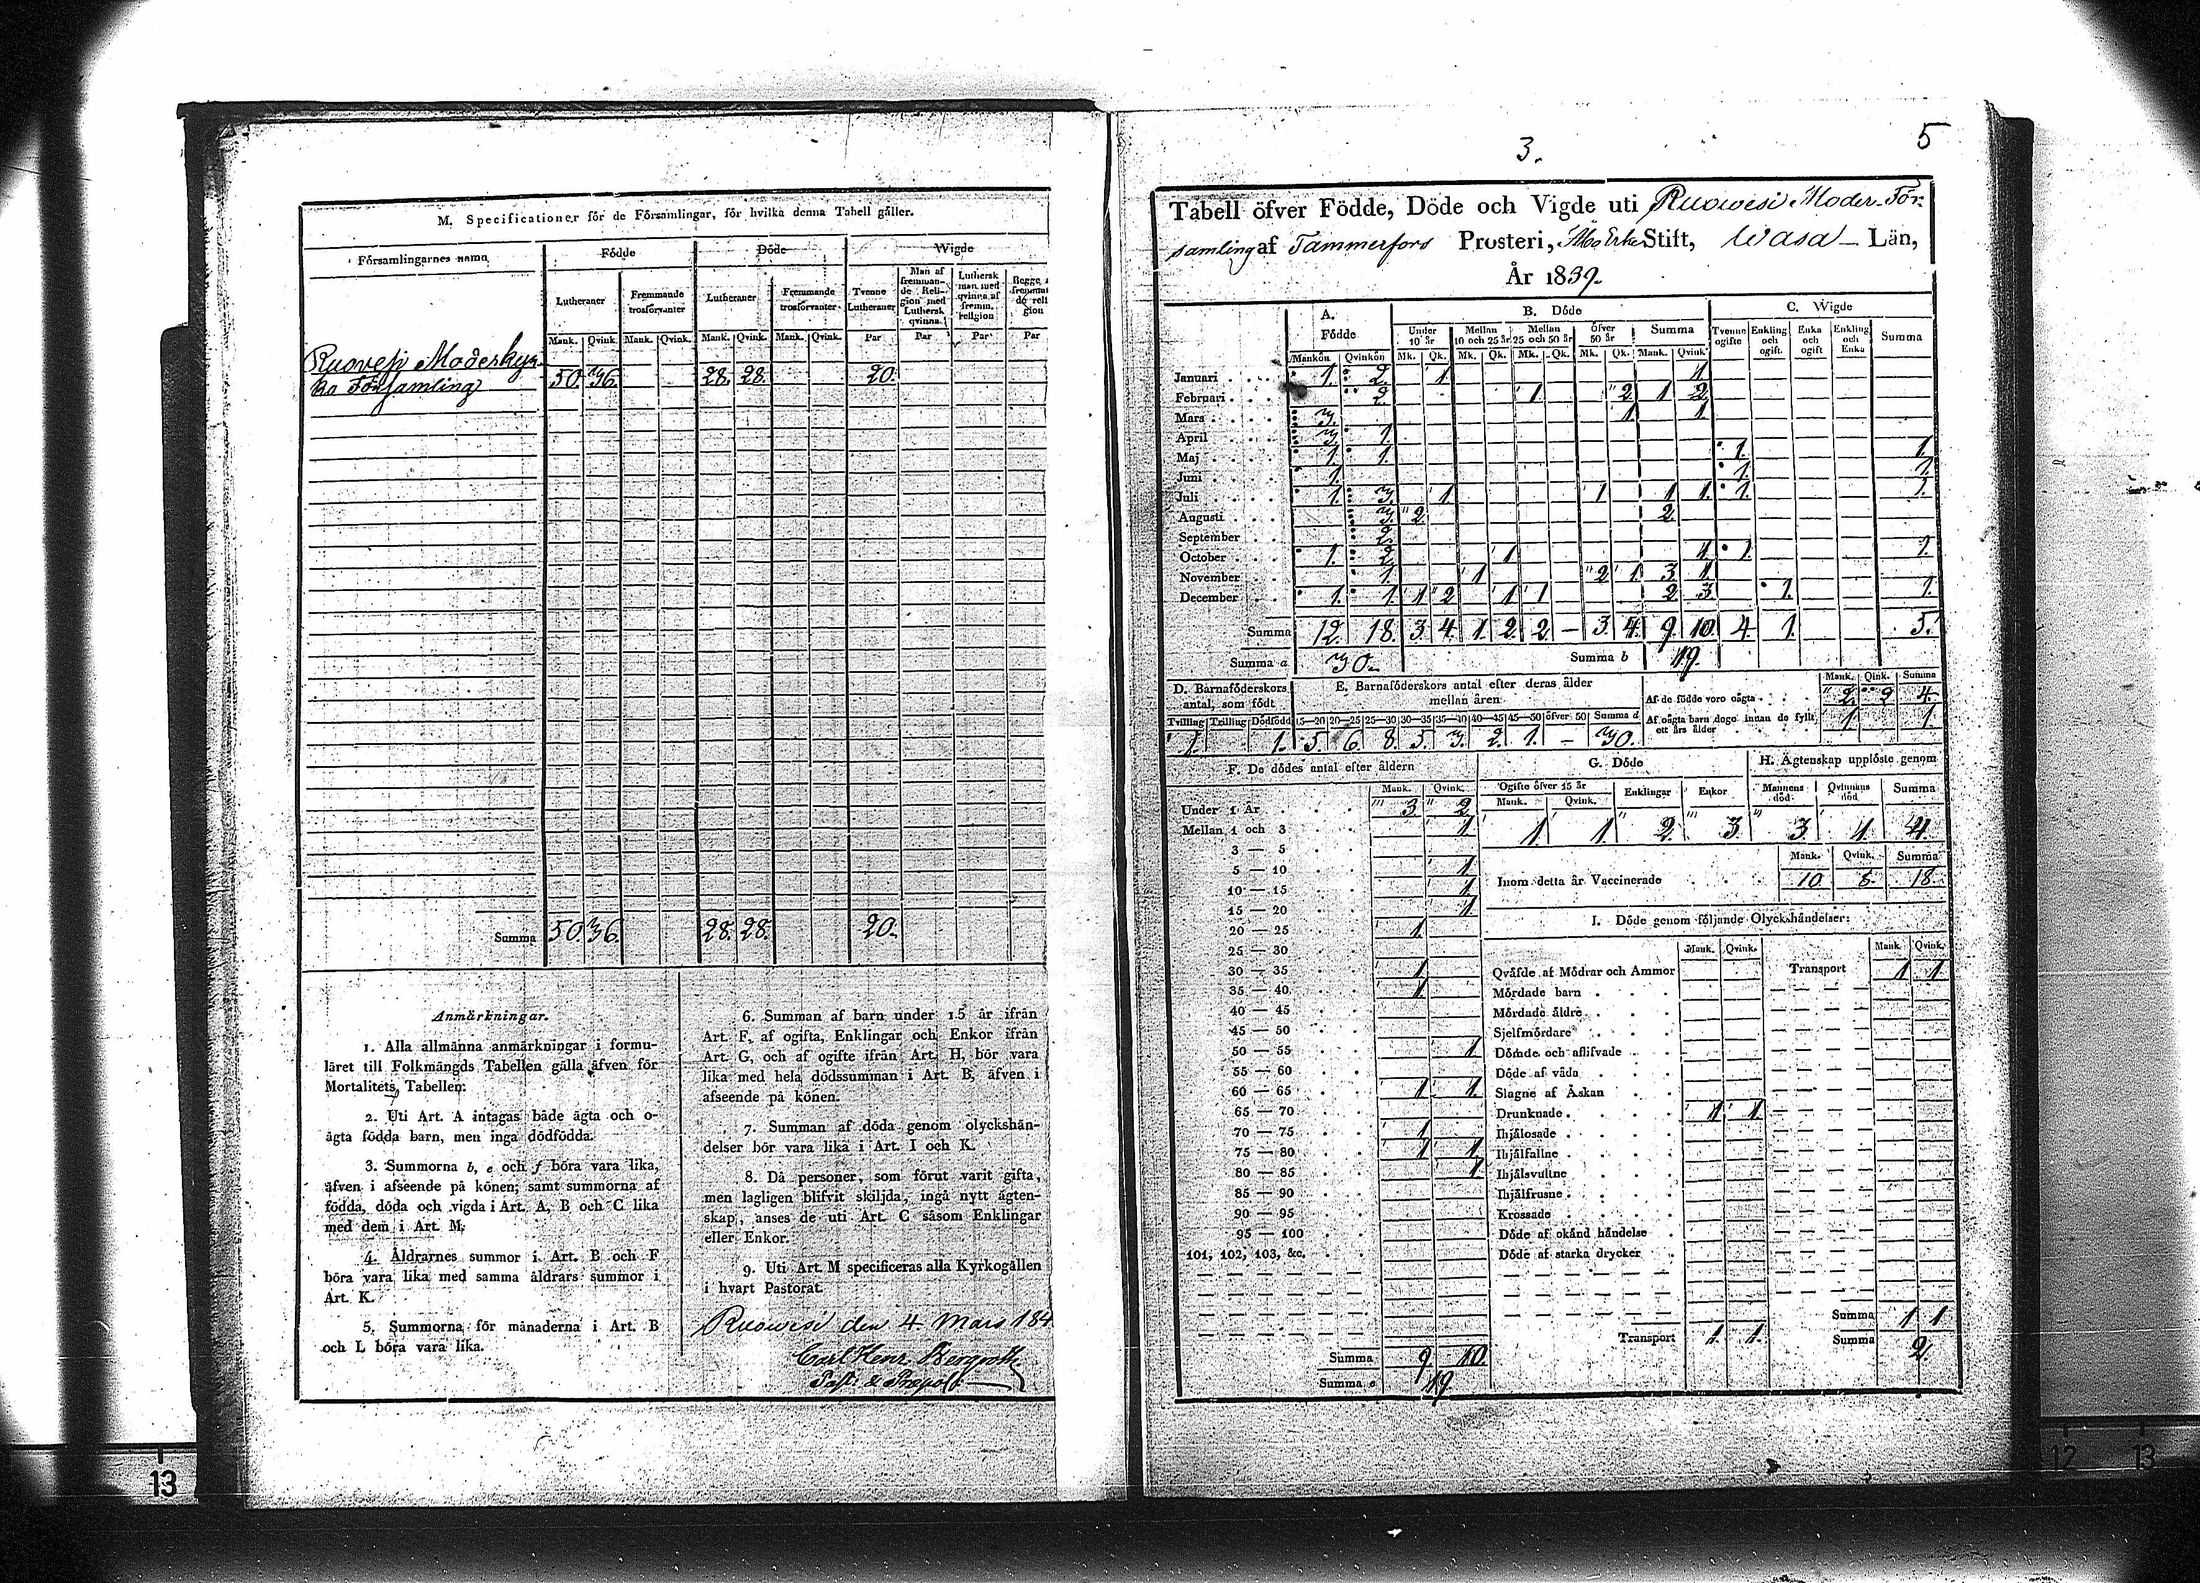 M. Specificationer för de Församlingar, för hvilka denna Tabell gäller.
Församlingarnes namn
Födde
Döde
Wigde
Lutheraner
Fremmande trosförvanter
Lutheraner
Fremmande trosförvanter
Tvenne Lutheraner
Man af fremmande Religion med Luthersk qvinna.
Luthersk man med qvinna af fremm. religion
Mank. Qvink. Mank. Qvink. Mank. Qvink. Mank. Qvink. Par Par Par Par
Ruovesi Moderkyr-
ko Församling 50. 36. 28. 28. 20.
Summa 50. 36. 28. 28. 20.
Anmärkningar.
1. Alla allmänna anmärkningar i formu-
läret till Folkmängds Tabellen gälla äfven för
Mortalitets Tabellen.
2. Uti Art. A intagas både ägta och o-
ägta födda barn, men inga dödfödda.
3. Summorna b, e och f böra vara lika,
äfven i afseende på könen; samt summorna af
födda, döda och vigda i Art. A, B och C lika
med dem i Art. M.
4. Åldrarnes summor i Art. B och F
böra vara lika med samma åldrars summor i
Art. K.
5. Summorna för månaderna i Art. B
och L böra vara lika.
6. Summan af barn under 15 år ifrån
Art. F, af ogifta, Enklingar och Enkor ifrån
Art. G, och af ogifte ifrån Art. H, bör vara
lika med hela dödssumman i Art. B, äfven i
afseende på könen.
7. Summan af döda genom olyckshän-
delser bör vara lika i Art. I och K.
8. Då personer, som förut varit gifta,
men lagligen blifvit skiljda, ingå nytt ägten-
skap, anses de uti Art. C såsom Enklingar
eller Enkor.
9. Uti Art. M specificeras alla Kyrkogällen
i hvart Pastorat.
Ruowesi den 4 Mars 184
Carl Henr. Bergroth
3.
5
Tabell öfver Födde, Döde och Vigde uti Ruowesi Moder För-
samling af Tammerfors Prosteri, Åbo Erke Stift, Wasa Län,
År 1839.
A. Födde
B. Döde
C. Wigde
Under 10 år
Mellan 10 och 25 år
Mellan 25 och 50 år
Öfver 50 år
Summa
Tvenne ogifte
Enkling och ogift.
Enka och ogift
Enkling och Enka
Summa
Mankön Qvinkön Mk. Qk. Mk. Qk. Mk. Qk. Mk. Qk. Mank. Qvink.
Januari 1. 2. 1. 1.
Februari 2. 1 2 1 2
Mars 3. 1 1
April 3. 1.
Maj 1. 1. 1. 1.
Juni 1. 1. 1.
Juli 1. 3. 1 1 1 1. 1. 1.
Augusti 3. 2 2
September 2.
October 1. 2. 1 1 1. 1.
November 1. 1 2 1. 3 1
December 1. 1. 1 2 1 1 2 3 1. 1.
Summa 12. 18. 3. 4. 1. 2. 2. — 3. 4. 9. 10. 4 1. 5.
Summa a 30.
Summa b 19.
D. Barnaföderskors antal, som födt
E. Barnaföderskors antal efter deras ålder mellan åren
Tvilling Trilling Dödfödd 15—20 20—25 25—30 30—35 35—40 40—45 45—50 öfver 50 Summa d
1. 1. 5. 6. 8. 5. 3. 2. 1. — 30.
Mank. Qink. Summa
Af de födde voro oägta 2. 2 4.
Af oägta barn dogo innan de fyllt ett års ålder 1. 1.
F. De dödes antal efter åldern
Mank. Qvink.
Under 1 År 3. 2
Mellan 1 och 3 1
3 — 5
5 — 10 1
10 — 15 1.
15 — 20 1
20 — 25 1.
25 — 30
30 — 35 1
35 — 40 1.
40 — 45
45 — 50
50 — 55 1
55 — 60
60 — 65 1 1.
65 — 70
70 — 75 1
75 — 80 1 1
80 — 85 1
85 — 90
90 — 95
95 — 100
101, 102, 103, &c.
Summa 9. 10.
Summa e 19.
G. Döde
Ogifte öfver 15 år
Mank. Qvink.
Enklingar
Enkor
1 1. 2. 3
H. Ägtenskap upplöste genom
Mannens död
Qvinnans död
Summa
3 1. 4.
Mank. Qvink. Summa
Inom detta år Vaccinerade 10 8. 18.
I. Döde genom följande Olyckshändelser:
Mank. Qvink. Mank. Qvink.
Qväfde af Mödrar och Ammor
Transport 1 1
Mördade barn
Mördade äldre
Sjelfmördare
Dömde och aflifvade
Döde af våda
Slagne af Åskan
Drunknade 1 1
Ihjälosade
Ihjälfallne
Ihjälsvultne
Ihjälfrusne
Krossade
Döde af okänd händelse
Döde af starka drycker
Transport 1. 1.
Summa 1 1
Summa 2.
13
12
13